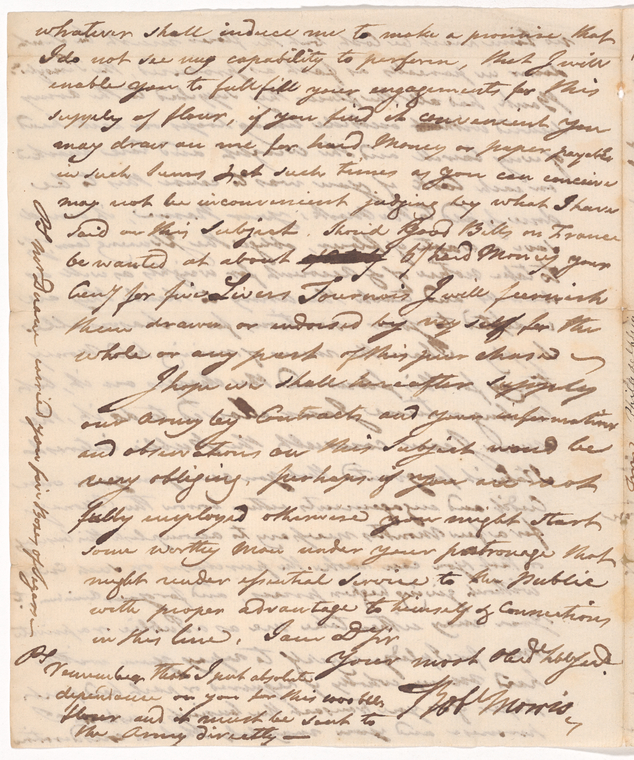 whatever shall induce me to make a promise that
I do not see my capability to perform, that I will
enable you to fullfill your engagements for this
supply of flour, if you find it convenient you
may draw on me for hard Money or paper payable
in such Sums & at such times as you can conceive
may not be inconvenient judging by what I have
said on this Subject. Should Good Bills on France
be wanted at about 6/ hard Money your
Curry for five Livers Tournois I will furnish
them drawn or endorsed by my self for the
whole or any part of this purchase
I hope we shall hereafter supply
our Army by Contracts and your information
and observations on this Subject would be
very obliging, perhaps if you are not
fully employed otherwise you might start
some worthy Man under your patronage that
might render essential Service to the Public
with proper advantage to himself & Connections
in this line. I am D Sir
Your most Obedt hble Servt
Robt Morris
PS
remember that I put absolute
dependance on you for this 1000 bbls
flour and it must be sent to
the Army directly
PS Mr Duane carried your five Boxes of Segars